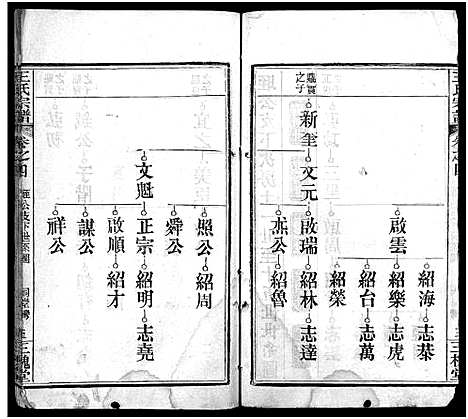 王氏宗譜
卷之四
三槐堂
啟雲
紹海
志恭
紹樂
志虎
紹台
志萬
紹榮
嘉賓之子
新奎
文元
啟瑞
紹林
志達
杰公
紹魯
文魁
照公
紹周
舜公
正宗
紹明
志堯
啟順
紹才
謀公
祥公
王氏宗譜
卷之四
三槐堂